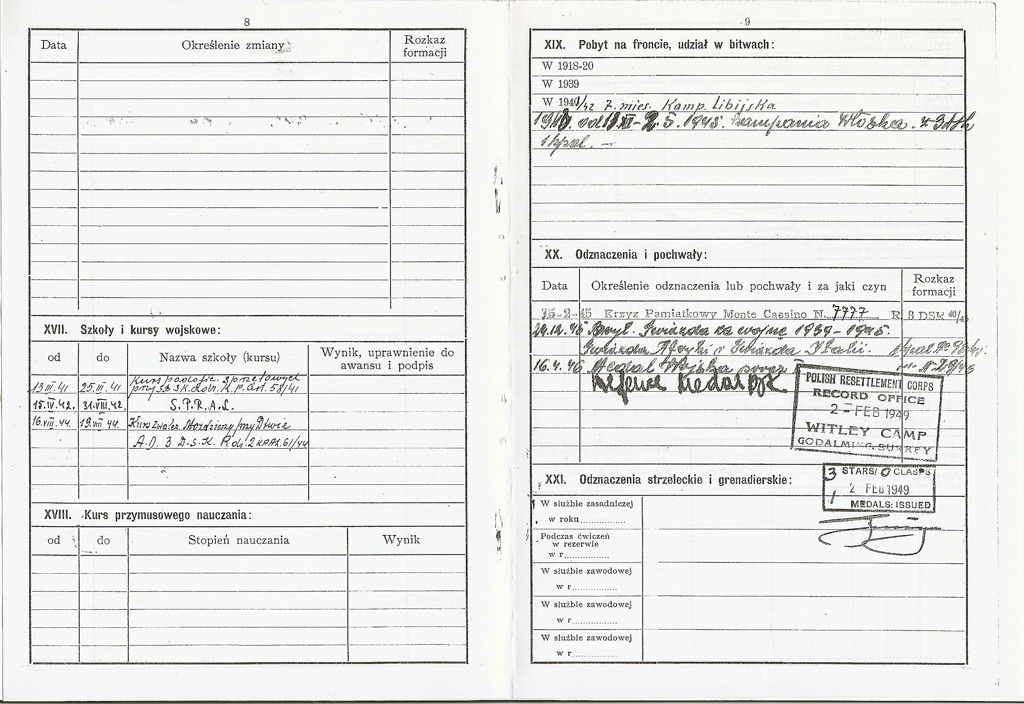 8
Data Określenie zmiany Rozkaz formacji
XVII. Szkoły i kursy wojskowe:
od do Nazwa szkoły (kursu) Wynik, uprawnienie do awansu i podpis
13 III. 41 25. III. 41 Kurs sprzętowych
przy 58/41
15. IV. 42. 31. VIII. 42. S.P.R.A.L.
16. VIII. 44. 19. VIII 44. Kurs przy Dtwie
A.D. 3 D.S.K. 61/44
XVIII. Kurs przymusowego nauczania:
od do Stopień nauczania Wynik
9
XIX. Pobyt na froncie, udział w bitwach:
W 1918-20
W 1939
W 1941/42 7. mies. Kamp. Libijska
od XII - 2. 5. 1945. Kampania Włoska.
XX. Odznaczenia i pochwały:
Data Określenie odznaczenia lub pochwały i za jaki czyn Rozkaz formacji
15-2-45 Krzyż Pamiątkowy Monte Cassino N. 7777 R 3 DSK
Bryt. Gwiazda za wojnę 1939 - 1945.
Gwiazda Afryki i Gwiazda Italii.
16. 4. 46 Medal Wojska
Defence Medal
POLISH RESETTLEMENT CORPS
RECORD OFFICE
2 - FEB 1949
WITLEY CAMP
GODALMING, SURREY
XXI. Odznaczenia strzeleckie i grenadierskie:
3 STARS/ 0 CLASPS
2 FEB 1949
1 MEDALS: ISSUED
W służbie zasadniczej
w roku
Podczas ćwiczeń
w rezerwie
w r
W służbie zawodowej
w r
W służbie zawodowej
w r
W służbie zawodowej
w r